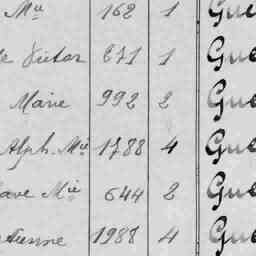 Mie 162 1 Gue
le Victor 671 1 Gue
Marie 992 2 Gue
Alph. Mie 1788 4 Gue
ave Mie 644 2 Gue
tienne 1988 4 Gue